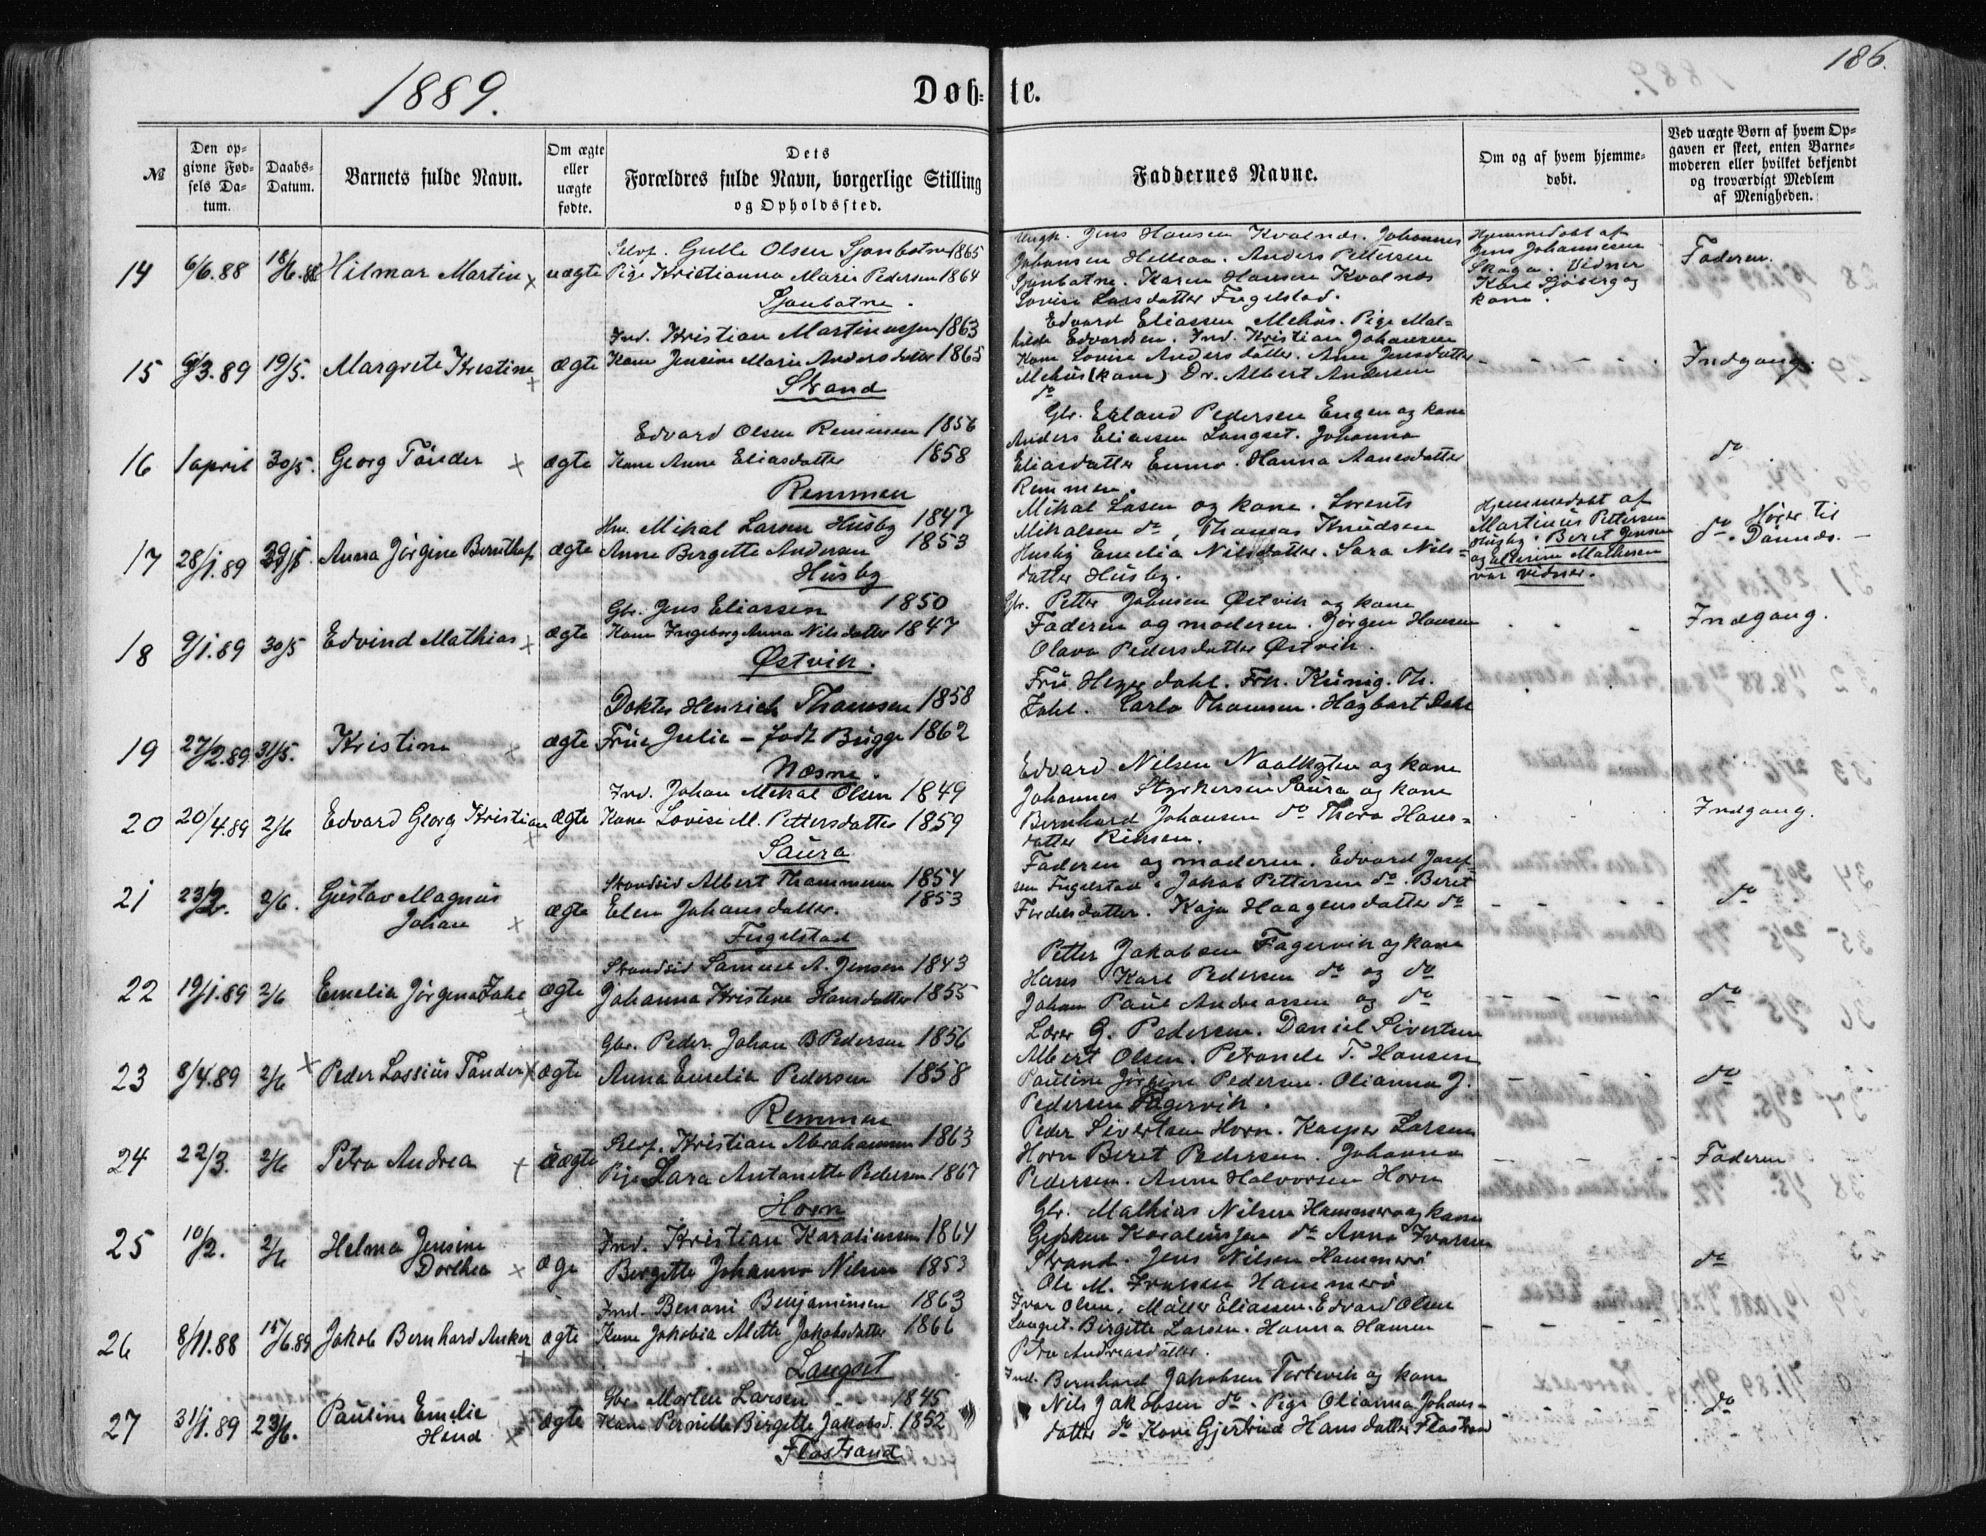 1889.
Døb-
te.
186.
№
Den op-
givne Fød-
sels Da-
tum.
Daabs-
Datum.
Barnets fulde Navn.
Om ægte
eller
uægte
fødte.
Dets
Forældres fulde Navn, borgerlige Stilling
og Opholdssted.
Faddernes Navne.
Om og af hvem hjemme-
døbt.
Ved uægte Børn af hvem Op-
gaven er skeet, enten Barne-
moderen eller hvilket bekjendt
og troværdigt Medlem
af Menigheden.
14 6/6.88 18/6.88 Hilmar Martin x uægte
Selvf. Gulle Olsen Sjonbotne 1865
Pige Kristianna Marie Pedersen 1864
Sjonbotne.
Ungk. Jens Hansen Kvalnæs. Johannes
Johansen Hellaa. Anders Pettersen
Sjonbotne. Karen Hansen Kvalnæs
Lovise Larsdatter Fugelstad.
Hjemmedøbt af
Jens Johannesen
Skaga. Vidner
Karl Sjøberg og
kone.
Faderen.
15 3.89 19/5. Margrete Kristine x ægte
Ind. Kristian Martinussen 1863
Kone Jensine Marie Andersdatter 1865
Strand
Edvard Eliassen Mehus. Pige Mat-
hilde Edvardsen. Ind. Kristian Johansen
Kone Lovise Andersdatter. Ane Jensdatter
Mehus (kone) Dr. Albert Andersen
do
Indgang.
16 1 april 30/5. Georg Tønder x ægte
Edvard Olsen Remmen 1856
Kone Anne Eliasdatter 1858
Remmen
Gbr. Erland Pedersen Engen og kone
Anders Eliassen Langset. Johanna
Eliasdatter Enmo. Hanna Aanesdatter
Remmen.
do.
17 28/1.89 Anna Jørgine ægte
Hm. Mikal Larsen Husby 1847
Anne Bergette Andersen 1853
Husby
Mikal Lasen og kone. Lorents
Mikalsen do, Thomas Knudsen
Husby Emelia Nilsdatter. Sara Nils-
datter Husby.
Hjemmedøbt af
Martinus Pettersen
Husby. Beret Jensen
og Mathesen
var vidner.
do. Hører til
Dønnæs.
18 9/1.89 30/5 Edvind Mathias x ægte
Gbr. Jens Eliassen 1850
Kone Ingeborg Anna Nilsdatter 1847
Østvik.
Gbr. Petter Johnsen Østvik og kone
Faderen og moderen. Jørgen Hansen
Olava Pedersdatter Østvik.
Indgang.
19 27/2.89 31/5. Kristine x ægte
Dokter Henrich Thomsen 1858
Frue Julie – født Bugge 1862
Næsne.
Fru Heyerdahl. Frk. Kunig. Th.
Carlo Thomsen. Hagbart Dahl
20 20/4.89 2/6 Edvard Georg Kristian x ægte
Ind. Johan Mikal Olsen 1849
Kone Lovise M. Pettersdatter 1859
Saura
Edvard Nilsen og kone
Johannes Styrkersen Saura og kone
Bernhard Johansen do Thora Hans-
datter
Indgang.
21 23/2. 2/6. Gustav Magnus
Johan x ægte
Strandsid Albert Thommesen 1854
Elen Johansdatter. 1853
Fugelstad
Faderen og moderen. Edvard Josef-
sen Fugelstad. Jakob Pettersen do. Beret
Fredriksdatter. Kaja Haagensdatter do
do
22 19/1.89 2/6 Emelia Jørgina ægte
Strandsid Samuel A. Jensen 1843
Johanna Kristine Hansdatter 1855
Petter Jakobsen Fagervik og kone
Hans Karl Pedersen do og do
Johan Paul Andreassen og do
do
23 8/4.89 2/6 x Peder Lossius Tønder x ægte
Gbr. Peder Johan B Pedersen 1856
Anna Emelia Pedersen 1858
Remmen
Lærer G. Pedersen. Daniel Sivertsen
Albert Olsen. Petronele T. Hansen
Pauline Jørgine Pedersen. Olianna J.
Pedersen Fagervik.
do
24 22/3. 2/6 Petra Andrea x uægte
Selvf. Kristian Abrahamsen 1863
Pige Lara Antonette Pedersen 1867
Horn
Peder Sivertsen Horn. Kasper Larsen
Horn Beret Pedersen. Johanna
Pedersen. Anne Halvorsen Horn
Faderen
25 10/2. 2/6 Helma Jensine
Dorthea x ægte
Ind. Kristian Karoliussen 1864
Birgitte Johanna Nilsen 1853
Gbr. Mathias Nilsen Hammerø og kone
Gjøsken Karoliussen do Anna Ivarsen
Strand. Jens Nilsen Hammerø
Ole M. Ivarsen Hammerø
do
26 8/11.88 15/6.89 Jakob Bernhard Anker x ægte
Ind. Benoni Benjaminsen 1863
Kone Jakobia Alette Jakobsdatter 1866
Langset
Ivar Olsen, Møller Eliassen. Edvard Olsen
Langset. Birgitte Larsen. Hanna Hansen
Petra Andreasdatter.
27 31/1.89 23/6. Pauline Emelie
x ægte
Gbr. Morten Larsen 1845
Kone Pernille Birgitte Jakobsd. 1852
Flostrand
Ind. Bernhard Jakobsen Tortevik og kone
Nils Jakobsen do. Pige Olianna Johans-
datter do Kone Gjertrud Hansdatter Flostrand
do